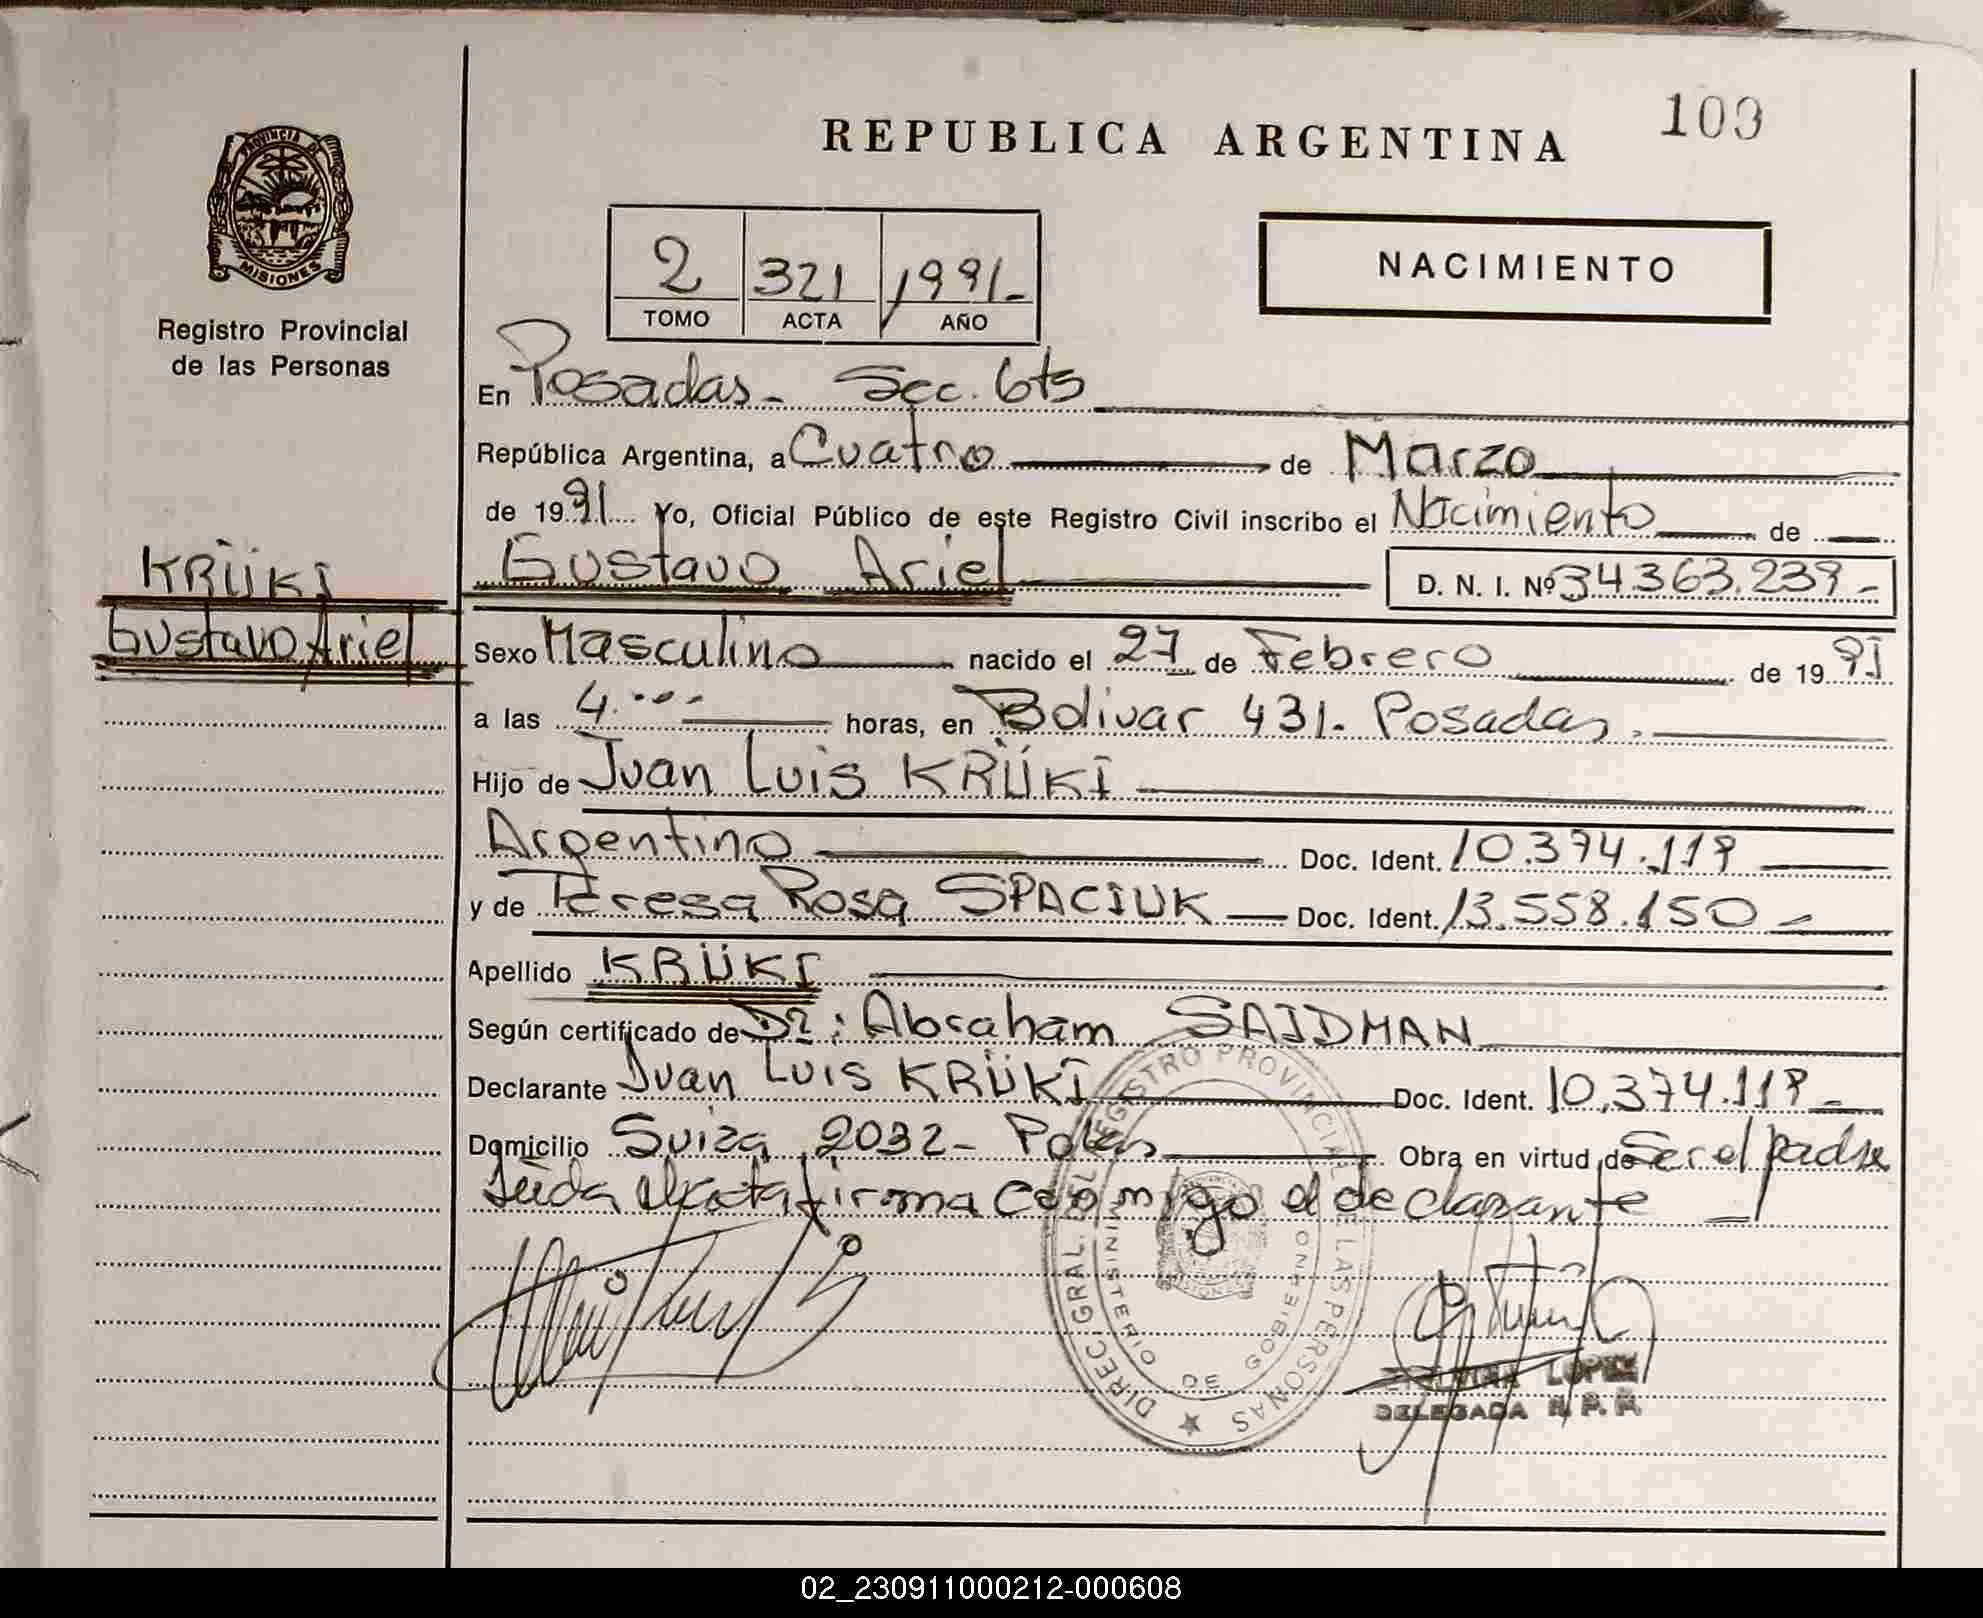 103
REPUBLICA ARGENTINA
PROVINCIA DE
MISIONES
Registro Provincial
de las Personas
2 321 1991-
TOMO ACTA AÑO
NACIMIENTO
En Posadas - Sec. 6ta
República Argentina, a Cuatro de Marzo
de 1991 Yo, Oficial Público de este Registro Civil inscribo el Nacimiento de
KRÜKI
Gustavo Ariel D. N. I. Nº 34.363.239-
Gustavo Ariel
Sexo Masculino nacido el 27 de Febrero de 1991
a las 4.... horas, en Bolivar 431- Posadas.
Hijo de Juan Luis KRÜKI
Argentino Doc. Ident. 10.374.119
y de Teresa Rosa SPACIUK Doc. Ident. 13.558.150-
Apellido KRÜKI
Según certificado de Dr: Abraham SAIDMAN
Declarante Juan Luis KRÜKI Doc. Ident. 10.374.119-
Domicilio Suiza 2032- Pdas Obra en virtud de Ser el padre
Leida el acta firma conmigo el declarante
DIREC. GRAL. DEL REGISTRO PROVINCIAL DE LAS PERSONAS
MINISTERIO DE GOBIERNO
LOPEZ
DELEGADA R. P. P.
02_230911000212-000608